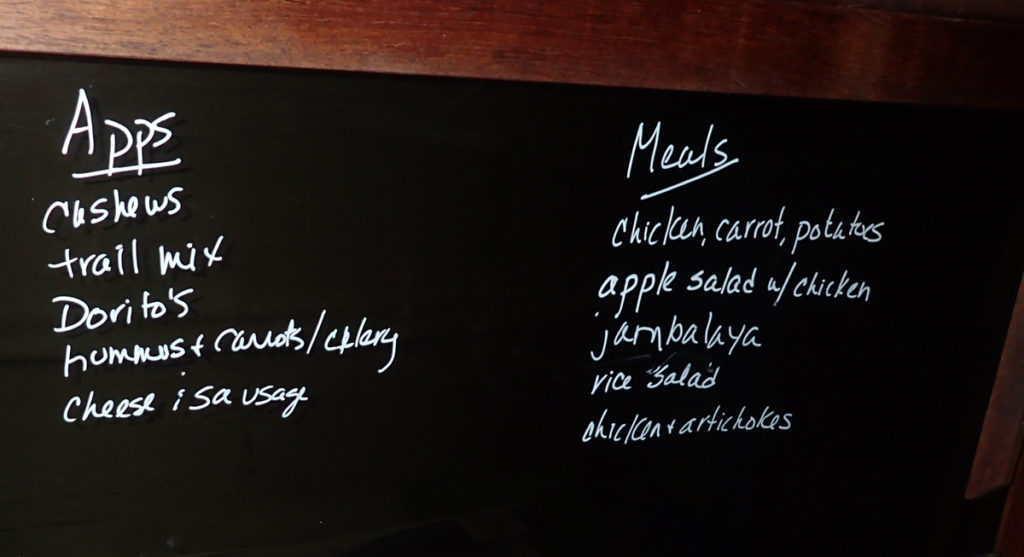 Apps
cashews
trail mix
Dorito's
hummus + carrots/celery
cheese i sausage
Meals
chicken, carrot, potatoes
apple salad w/ chicken
jambalaya
rice salad
chicken + artichokes